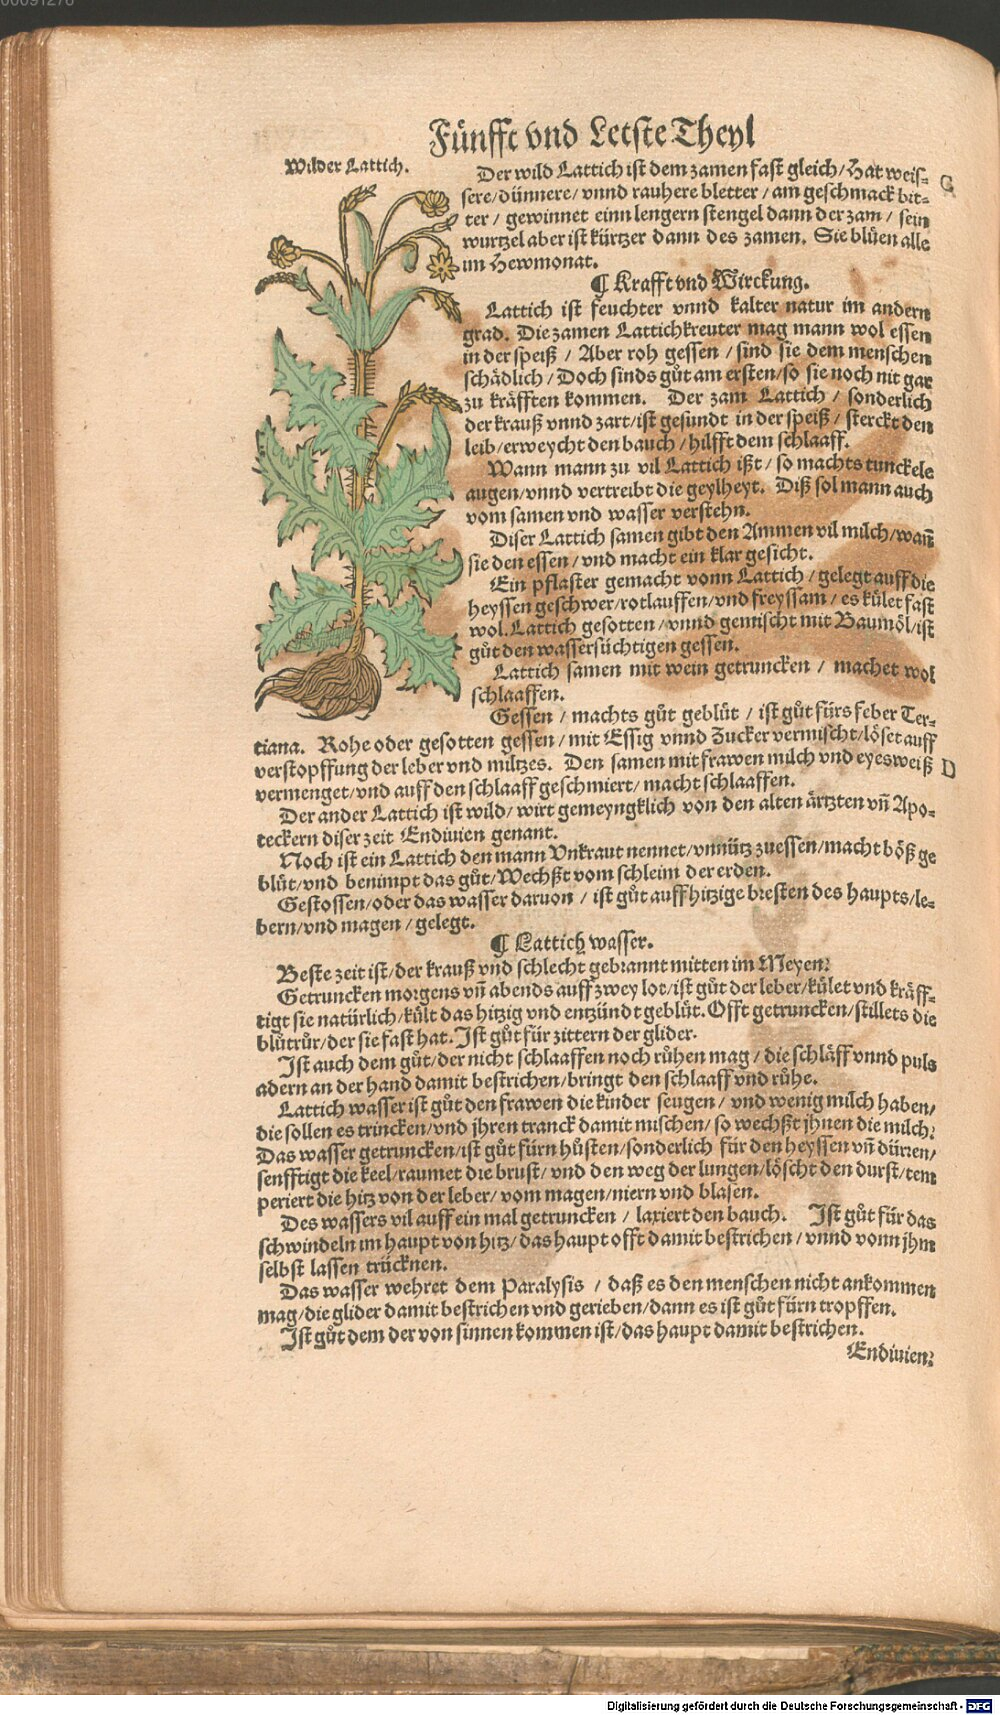 00091276
Fünfft vnd Letste Theyl
Wilder Lattich.
Der wild Lattich ist dem zamen fast gleich/ Hat weis-
C
sere/ dünnere/ vnnd rauhere bletter / am geschmack bit-
ter / gewinnet einn lengern stengel dann der zam / sein
wurtzel aber ist kürtzer dann des zamen. Sie blüen alle
im Hewmonat.
¶ Krafft vnd Wirckung.
Lattich ist feuchter vnnd kalter natur im andern
grad. Die zamen Lattichkreuter mag mann wol essen
in der speiß / Aber roh gessen / sind sie dem menschen
schädlich / Doch sinds gůt am ersten/so sie noch nit gar
zu kräfften kommen. Der zam Lattich / sonderlich
der krauß vnnd zart/ist gesundt in der speiß / sterckt den
leib/erweycht den bauch / hilfft dem schlaaff.
Wann mann zu vil Lattich ißt / so machts tunckele
augen/vnnd vertreibt die geylheyt. Diß sol mann auch
vom samen vnd wasser verstehn.
Diser Lattich samen gibt den Ammen vil milch/wañ
sie den essen / vnd macht ein klar gesicht.
Ein pflaster gemacht vonn Lattich / gelegt auff die
heyssen geschwer/rotlauffen/vnd freyssam / es kület fast
wol. Lattich gesotten / vnnd gemischt mit Baumöl/ist
gůt den wassersüchtigen gessen.
Lattich samen mit wein getruncken / machet wol
schlaaffen.
Gessen / machts gůt geblüt / ist gůt fürs feber Ter-
tiana. Rohe oder gesotten gessen / mit Essig vnnd Zucker vermischt/löset auff
verstopffung der leber vnd miltzes. Den samen mit frawen milch vnd eyesweiß
D
vermenget/vnd auff den schlaaff geschmiert/ macht schlaaffen.
Der ander Lattich ist wild/ wirt gemeyngklich von den alten ärtzten vñ Apo-
teckern diser zeit Endiuien genant.
Noch ist ein Lattich den mann Vnkraut nennet/vnnütz zuessen/macht böß ge
blüt/vnd benimpt das gůt/Wechßt vom schleim der erden.
Gestossen/oder das wasser daruon / ist gůt auff hitzige bresten des haupts/le-
bern/vnd magen / gelegt.
¶ Lattich wasser.
Beste zeit ist/der krauß vnd schlecht gebrannt mitten im Meyen:
Getruncken morgens vñ abends auff zwey lot/ist gůt der leber/kület vnd kräff-
tigt sie natürlich/kült das hitzig vnd entzündt geblüt. Offt getruncken/stillets die
blůtrůr/der sie fast hat. Ist gůt für zittern der glider.
Ist auch dem gůt/der nicht schlaaffen noch růhen mag / die schläff vnnd puls
adern an der hand damit bestrichen/bringt den schlaaff vnd růhe.
Lattich wasser ist gůt den frawen die kinder seugen / vnd wenig milch haben/
die sollen es trincken/vnd jhren tranck damit mischen/ so wechßt jhnen die milch:
Das wasser getruncken/ist gůt fürn hůsten/sonderlich für den heyssen vñ dürren/
senfftigt die keel/raumet die brust/ vnd den weg der lungen/löscht den durst/tem
periert die hitz von der leber/ vom magen/niern vnd blasen.
Des wassers vil auff ein mal getruncken / laxiert den bauch. Ist gůt für das
schwindeln im haupt von hitz/ das haupt offt damit bestrichen / vnnd vonn jhm
selbst lassen trücknen.
Das wasser wehret dem Paralysis / daß es den menschen nicht ankommen
mag/die glider damit bestrichen vnd gerieben/dann es ist gůt fürn tropffen.
Ist gůt dem der von sinnen kommen ist/das haupt damit bestrichen.
Endiuien:
Digitalisierung gefördert durch die Deutsche Forschungsgemeinschaft - DFG